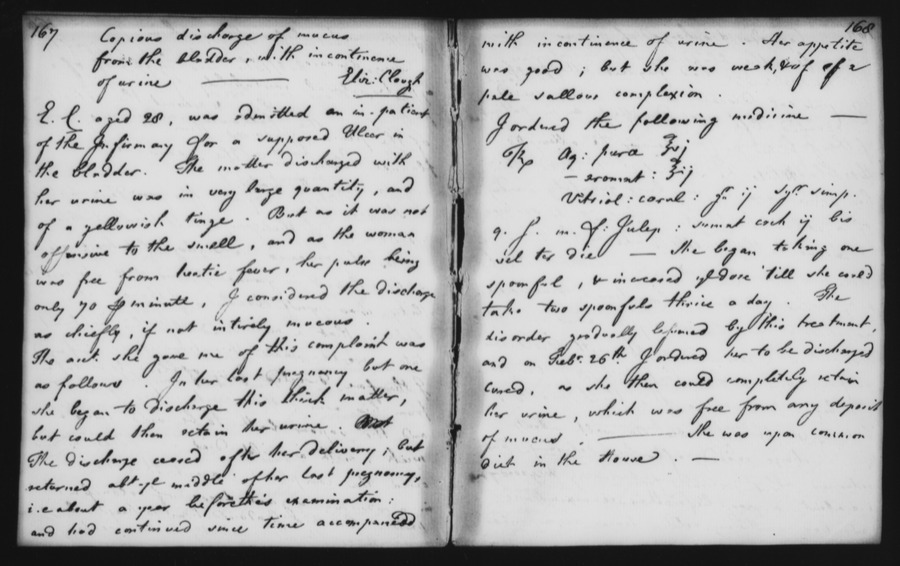 167
Copious discharge of mucus
from the bladder, with incontinence
of urine —— Eliz: Clough
E. C. aged 28, was admitted an in-patient
of the Infirmary for a supposed Ulcer in
the bladder. The matter discharged with
her urine was in very large quantity, and
of a yellowish tinge. But as it was not
offensive to the smell, and as the woman
was free from hectic fever, her pulse being
only 70 p minute, I considered the discharge
as chiefly, if not intirely mucous.
The acct. she gave me of this complaint was
as follows. In her last pregnancy but one
she began to discharge this thick matter,
but could then retain her urine.
The discharge ceased after her delivery, but
returned abt ye middle of her last pregnancy,
i.e about a year before this examination:
and had continued since time accompanied
168
with incontinence of urine. Her appetite
was good; but she was weak, & of a
pale sallow complexion.
I ordered the following medicine —
Rx Aq: puræ ℥vj
— aromat: ℥ij
Vitriol: cærul: gr ij Syr. simp.
q. s. m. f: Julep: sumat coch ij bis
vel ter die — She began taking one
spoonful, & increased ye dose till she could
take two spoonfuls thrice a day. The
disorder gradually lessened by this treatment,
and on Febr. 26th. I ordered her to be discharged
cured, as she then could completely retain
her urine, which was free from any deposit
of mucus. —— She was upon common
diet in the House. —